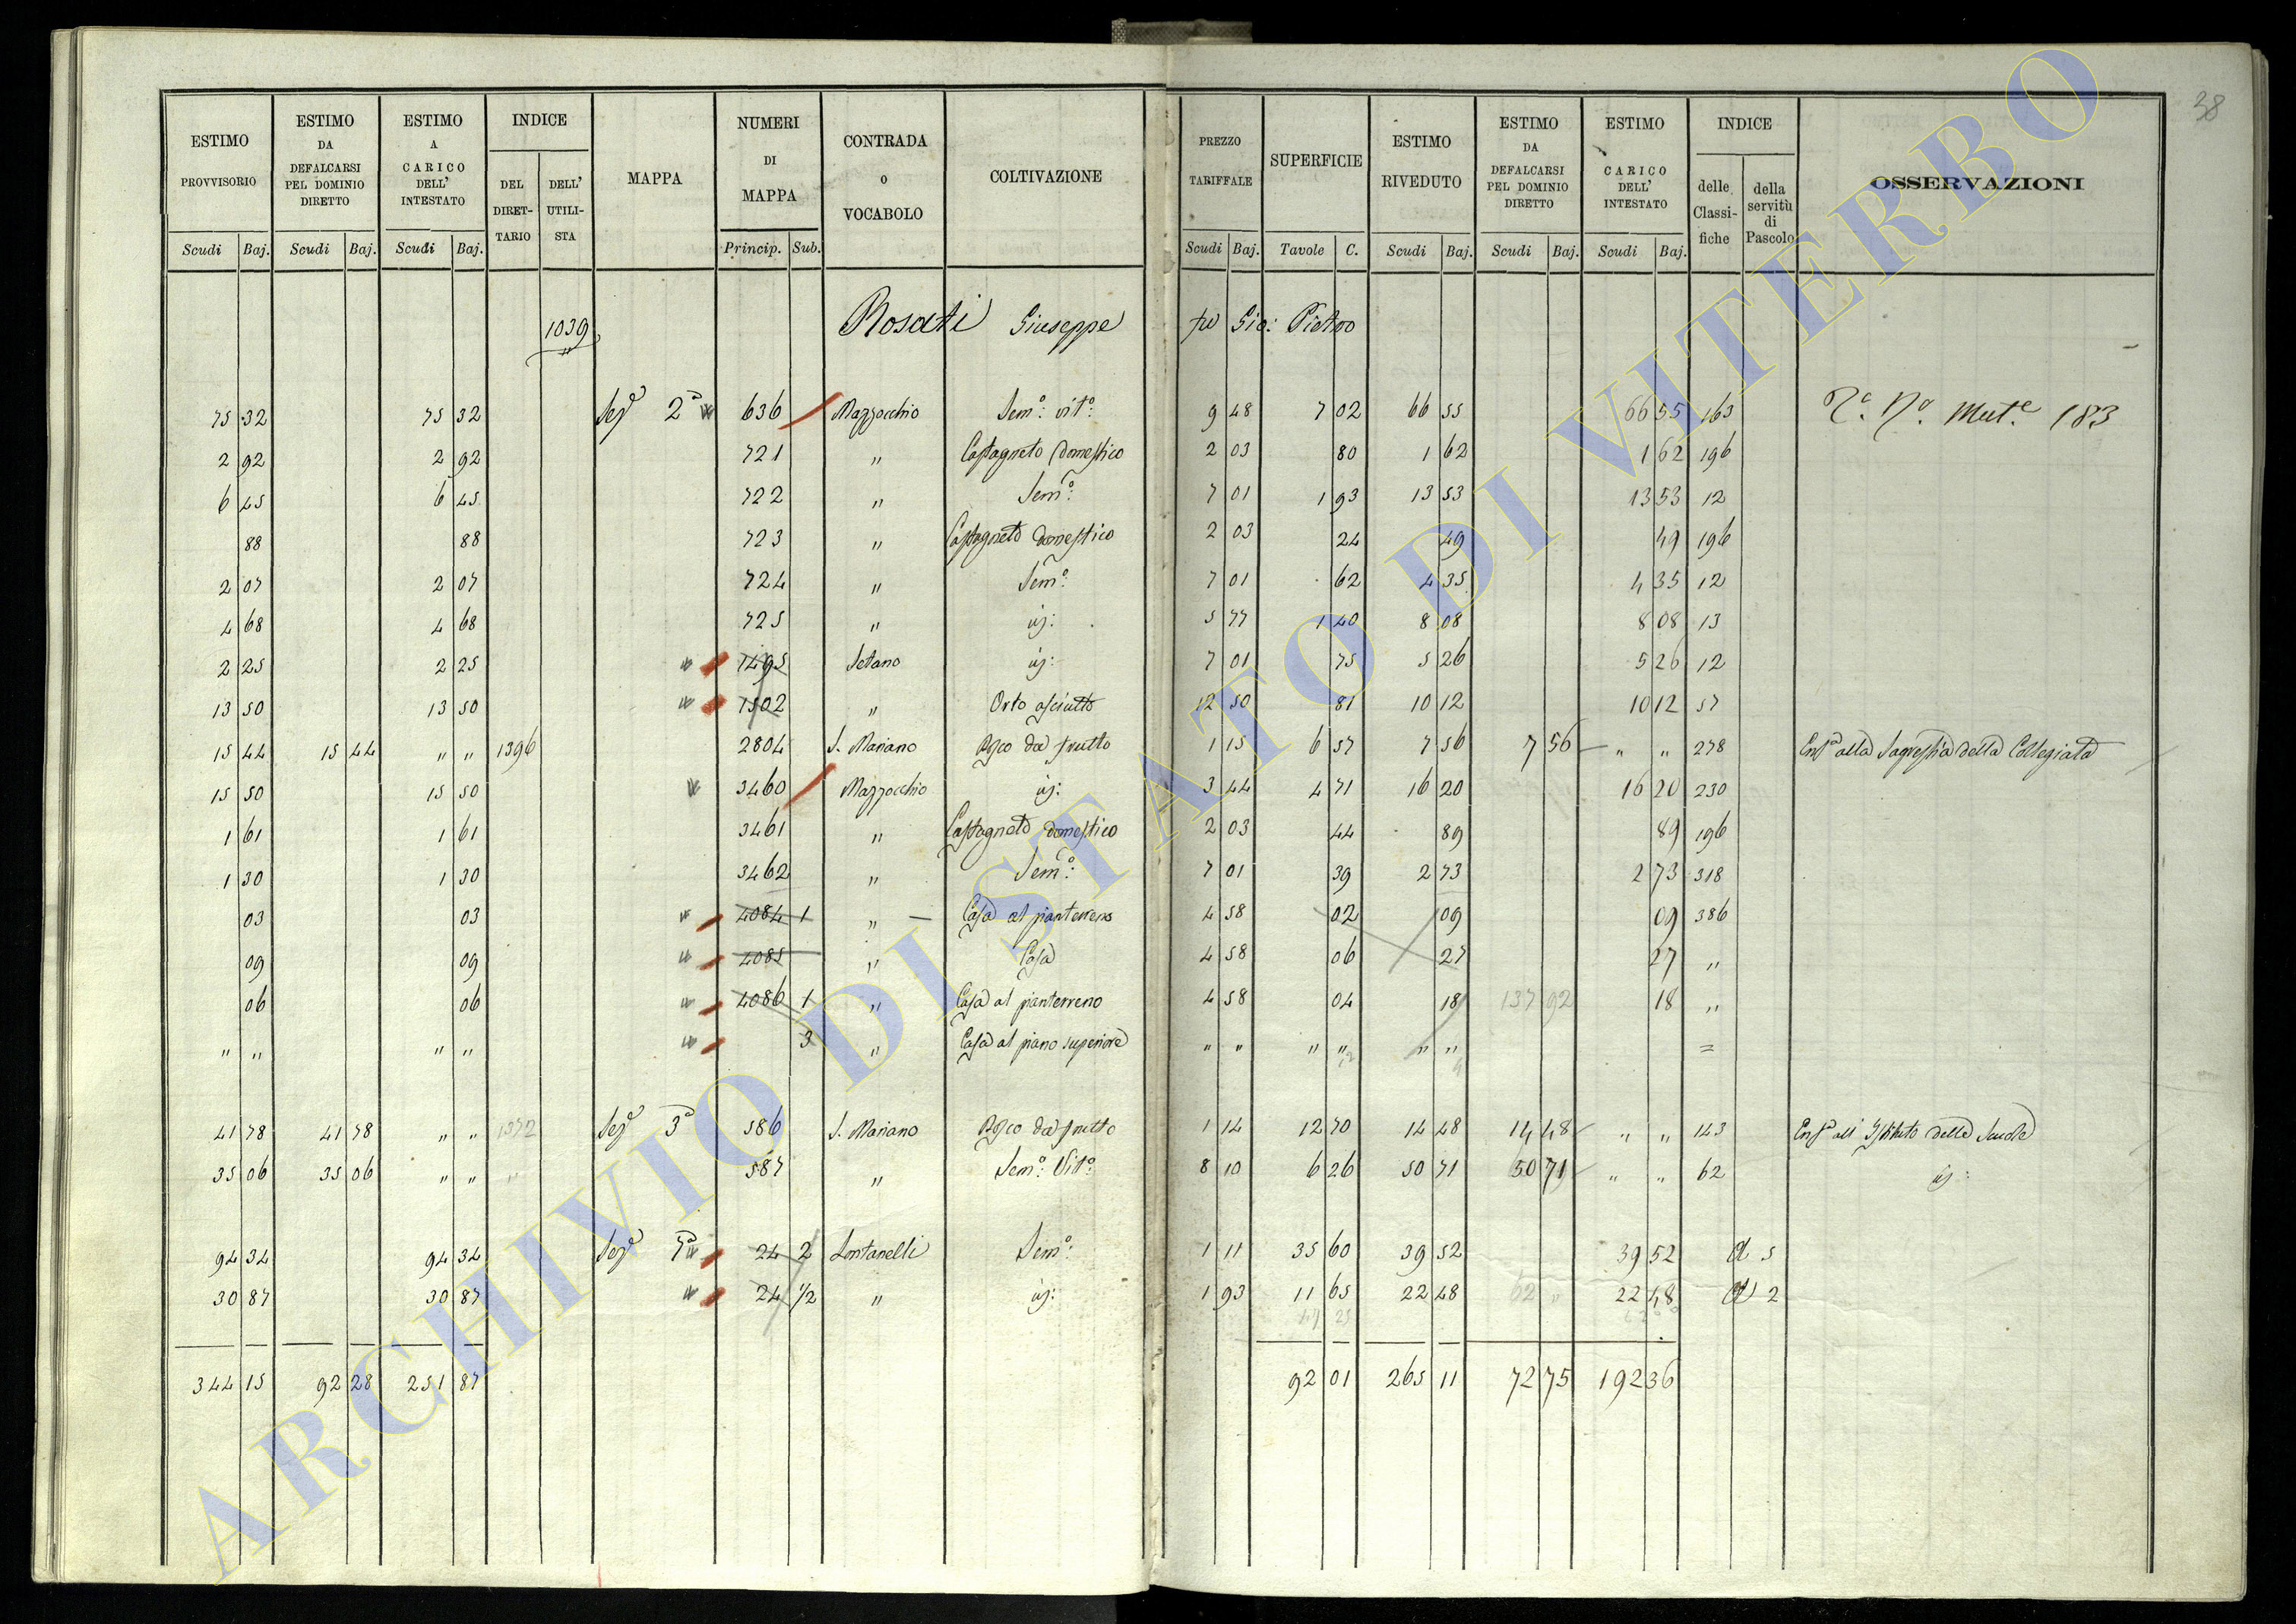 38
ESTIMO PROVVISORIO | ESTIMO DA DEFALCARSI PEL DOMINIO DIRETTO | ESTIMO A CARICO DELL' INTESTATO | INDICE | MAPPA | NUMERI DI MAPPA | CONTRADA O VOCABOLO | COLTIVAZIONE | PREZZO TARIFFALE | SUPERFICIE | ESTIMO RIVEDUTO | ESTIMO DA DEFALCARSI PEL DOMINIO DIRETTO | ESTIMO A CARICO DELL' INTESTATO | INDICE | OSSERVAZIONI
DEL DIRETTARIO | DELL' UTILISTA | delle Classifiche | della servitù di Pascolo
Scudi | Baj. | Scudi | Baj. | Scudi | Baj. | Princip. | Sub. | Scudi | Baj. | Tavole | C. | Scudi | Baj. | Scudi | Baj. | Scudi | Baj.
1039 Rosati Giuseppe fu Gio: Pietro
75 32 | 75 32 | Sez.ª 2ª | 636 | Mazzocchio | Sem.º: vit.º: | 9 48 | 7 02 | 66 55 | 66 55 | 163 | Mut.e 183
2 92 | 2 92 | 721 | " | Castagneto domestico | 2 03 | 80 | 1 62 | 1 62 | 196
6 45 | 6 45 | 722 | " | Sem.º: | 7 01 | 1 93 | 13 53 | 13 53 | 12
88 | 88 | 723 | " | Castagneto domestico | 2 03 | 24 | 49 | 49 | 196
2 07 | 2 07 | 724 | " | Sem.º: | 7 01 | 62 | 4 35 | 4 35 | 12
4 68 | 4 68 | 725 | " | id: | 5 77 | 1 40 | 8 08 | 8 08 | 13
2 25 | 2 25 | 1495 | Setano | id: | 7 01 | 75 | 5 26 | 5 26 | 12
13 50 | 13 50 | 1502 | " | Orto asciutto | 12 50 | 81 | 10 12 | 10 12 | 57
15 44 | 15 44 | " " | 1396 | 2804 | S. Mariano | Psco da frutto | 1 15 | 6 57 | 7 56 | 7 56 | " " | 278 | Enf.ª alla Sagrestia della Collegiata
15 50 | 15 50 | 3460 | Mazzocchio | id: | 3 44 | 4 71 | 16 20 | 16 20 | 230
1 61 | 1 61 | 3461 | " | Castagneto domestico | 2 03 | 44 | 89 | 89 | 196
1 30 | 1 30 | 3462 | " | Sem.º: | 7 01 | 39 | 2 73 | 2 73 | 318
03 | 03 | 4084 | 1 | " | Casa al pianterreno | 4 58 | 02 | 09 | 09 | 386
09 | 09 | 4085 | " | Casa | 4 58 | 06 | 27 | 27 | "
06 | 06 | 4086 | 1 | " | Casa al pianterreno | 4 58 | 04 | 18 | 137 92 | 18 | "
" " | " " | 3 | " | Casa al piano superiore | " " | " " | " " | =
41 78 | 41 78 | " " | 1372 | Sez.ª 3ª | 586 | S. Mariano | Psco da frutto | 1 14 | 12 70 | 14 48 | 14 48 | " " | 143 | Enf.ª all' Istituto delle Scuole
35 06 | 35 06 | " " | " | 587 | " | Sem.º: Vit.º: | 8 10 | 6 26 | 50 71 | 50 71 | " " | 62 | id:
94 34 | 94 34 | Sez.ª | 24 | 2 | Lontanelli | Sem.º: | 1 11 | 35 60 | 39 52 | 39 52 | 5
30 87 | 30 87 | 24 | 1/2 | " | id: | 1 93 | 11 65 | 22 48 | 62 " | 22 48 | 2
344 15 | 92 28 | 251 87 | 92 01 | 265 11 | 72 75 | 192 36
ARCHIVIO DI STATO DI VITERBO